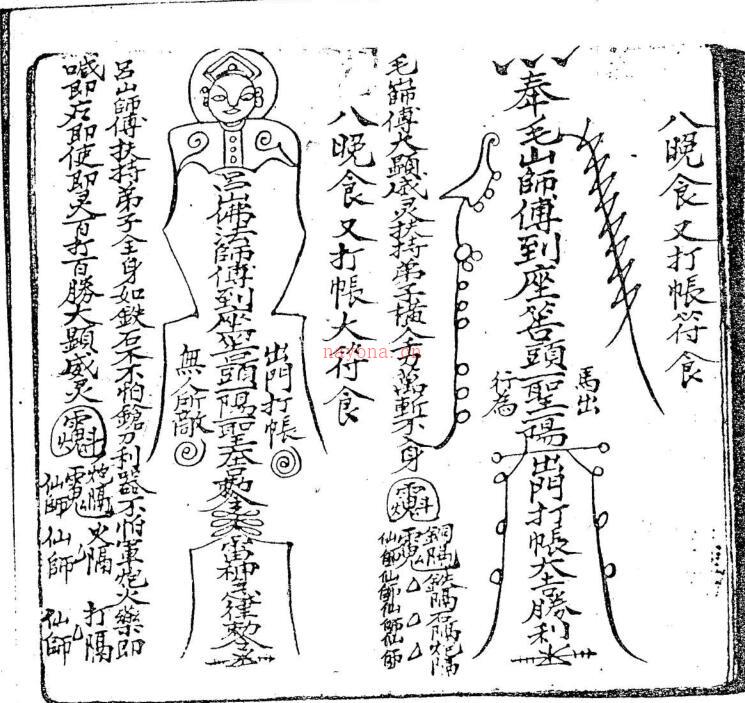 八晚食又打帳符食
奉毛山師傅到座答頭一聖陽
馬出
行為
出門打帳大吉勝利
毛山師傅大顯威灵扶持弟子橫全刀萬斬不入身
銅隔鉄隔石隔炮隔
仙師仙師仙師仙師
八晚食又打帳大符食
呂山佛法師傅到座
出門打帳
無人所敵
呂山師傅扶持弟子全身如鉄石不怕鎗刀利器不怕軍炮火藥即
喊即在即使即灵百打百勝大顯威灵
炮隔 火隔 打隔
仙師 仙師 仙師
nayona.cn